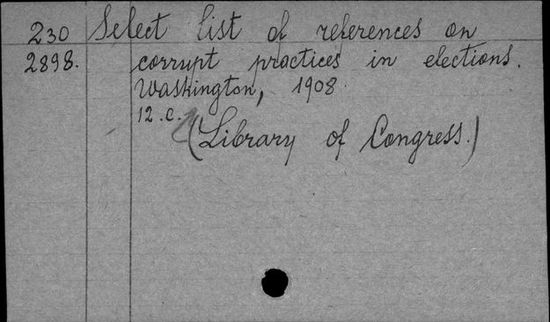 230 Select list of references on
2898. corrupt practices in elections.
Washington, 1908.
12.c.
(Library of Congress.)